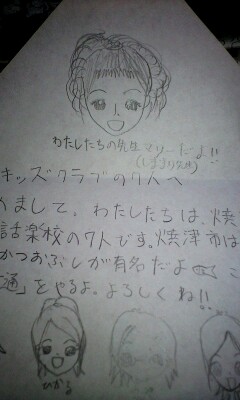 わたしたちの先生マリーだよ!!
キッズクラブの7人へ
めまして。わたしたちは、焼
話楽校の7人です。焼津市は
かつおぶしが有名だよ こ
通」をやるよ。よろしくね!!
ひかる